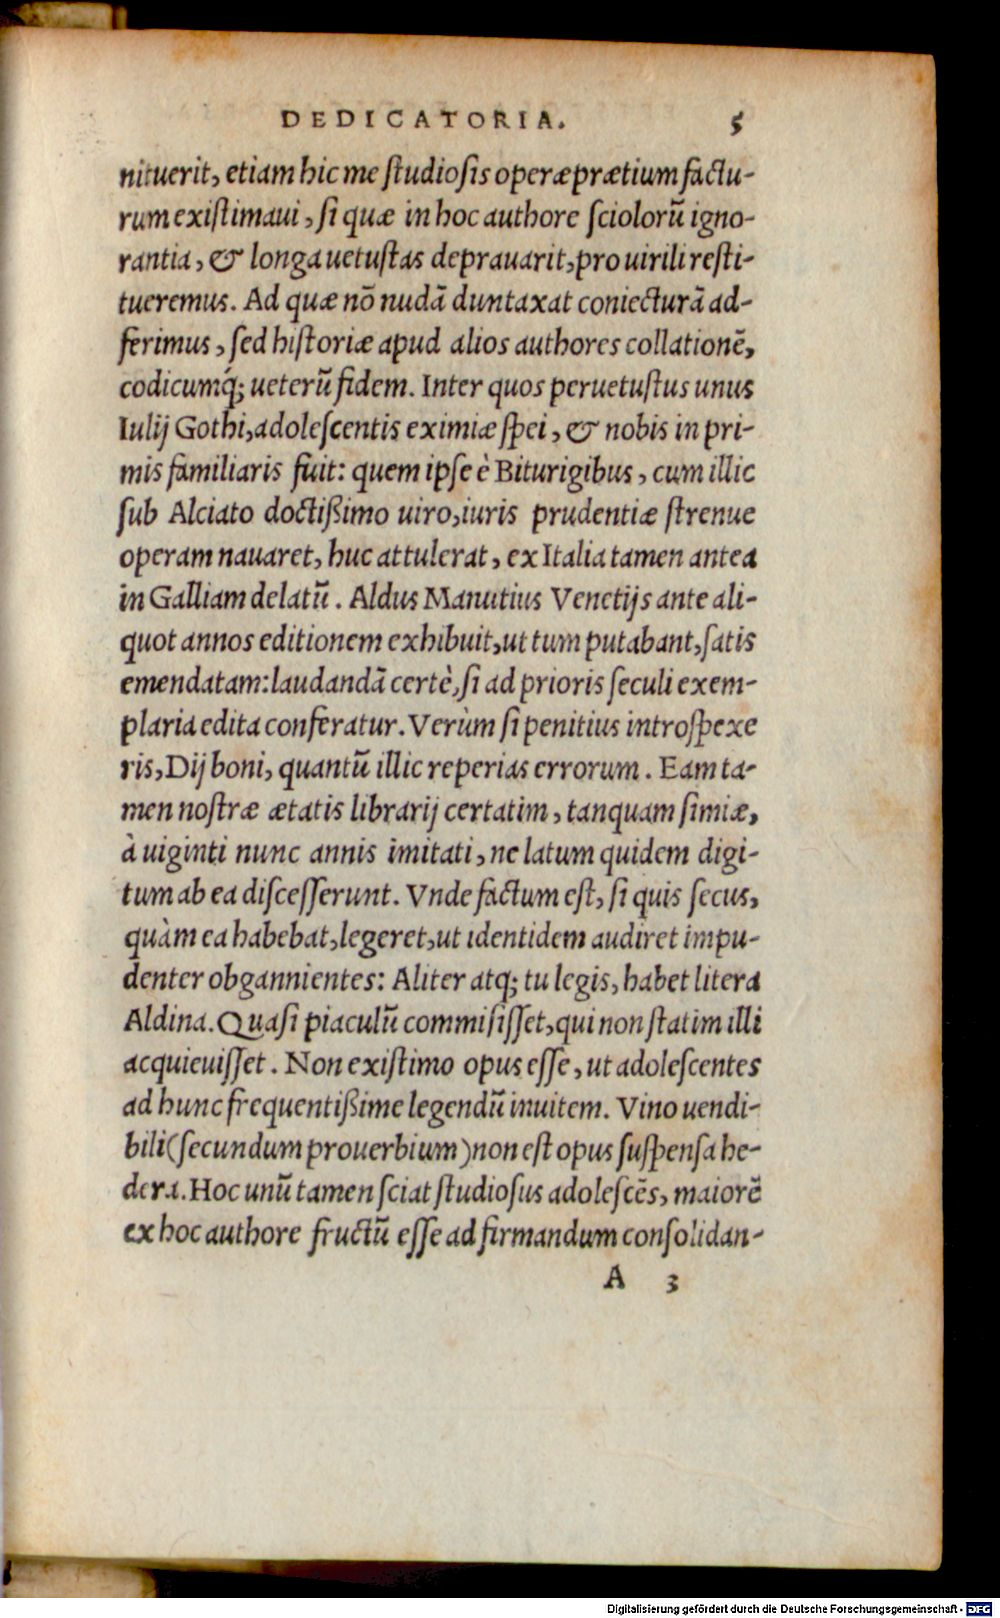 DEDICATORIA. 5
nituerit, etiam hic me ſtudioſis operæprætium factu-
rum exiſtimaui, ſi quæ in hoc authore ſciolorũ igno-
rantia, & longa uetuſtas deprauarit, pro uirili reſti-
tueremus. Ad quæ nõ nudã duntaxat coniecturã ad-
ferimus, ſed hiſtoriæ apud alios authores collationẽ,
codicumq́; ueterũ fidem. Inter quos peruetuſtus unus
Iulij Gothi, adoleſcentis eximiæ ſpei, & nobis in pri-
mis familiaris fuit: quem ipſe è Biturigibus, cum illic
ſub Alciato doctißimo uiro, iuris prudentiæ ſtrenue
operam nauaret, huc attulerat, ex Italia tamen antea
in Galliam delatũ. Aldus Manutius Venetijs ante ali-
quot annos editionem exhibuit, ut tum putabant, ſatis
emendatam: laudandã certè, ſi ad prioris ſeculi exem-
plaria edita conferatur. Verùm ſi penitius introſpexe
ris, Dij boni, quantũ illic reperias errorum. Eam ta-
men noſtræ ætatis librarij certatim, tanquam ſimiæ,
à uiginti nunc annis imitati, ne latum quidem digi-
tum ab ea diſceſſerunt. Vnde factum eſt, ſi quis ſecus,
quàm ea habebat, legeret, ut identidem audiret impu-
denter obgannientes: Aliter atq; tu legis, habet litera
Aldina. Quaſi piaculũ commiſiſſet, qui non ſtatim illi
acquieuiſſet. Non exiſtimo opus eſſe, ut adoleſcentes
ad hunc frequentißime legendũ inuitem. Vino uendi-
bili (ſecundum prouerbium) non eſt opus ſuſpenſa he-
dera. Hoc unũ tamen ſciat ſtudioſus adoleſcẽs, maiorẽ
ex hoc authore fructũ eſſe ad firmandum conſolidan-
A 3
Digitalisierung gefördert durch die Deutsche Forschungsgemeinschaft - DFG